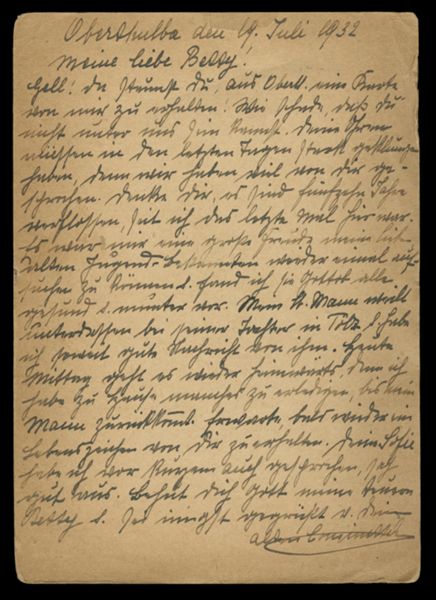 Oberthulba den 19. Juli 1932
Meine liebe Betty!
Gell! da staunst du, aus Oberth. eine Karte
von mir zu erhalten! Wie schade, daß du
nicht unter uns sein kannst. Deine Ohren
müssen in den letzten Tagen stark geklungen
haben, denn wir haben viel von dir ge-
sprochen. Denke dir, es sind fünfzehn Jahre
verflossen, seit ich das letzte Mal hier war.
Es war mir eine große Freude meine lieb.
alten Jugend-Bekannten wieder einmal auf-
suchen zu können u. fand ich sie Gottlob alle
gesund u. munter vor. Mein lb. Mann weilt
unterdessen bei seiner Tochter in Tölz u. habe
ich soweit gute Nachricht von ihm. Heute
Mittag geht es wieder heimwärts, denn ich
habe zu Hause manches zu erledigen, bis mein
Mann zurückkommt. Erwarte, bald wieder ein
Lebenszeichen von dir zu erhalten. Deine Sofie
habe ich vor kurzem auch gesprochen, sah
gut aus. Behüt dich Gott meine teuere
Betty u. sei innigst gegrüßt v. deiner
alten